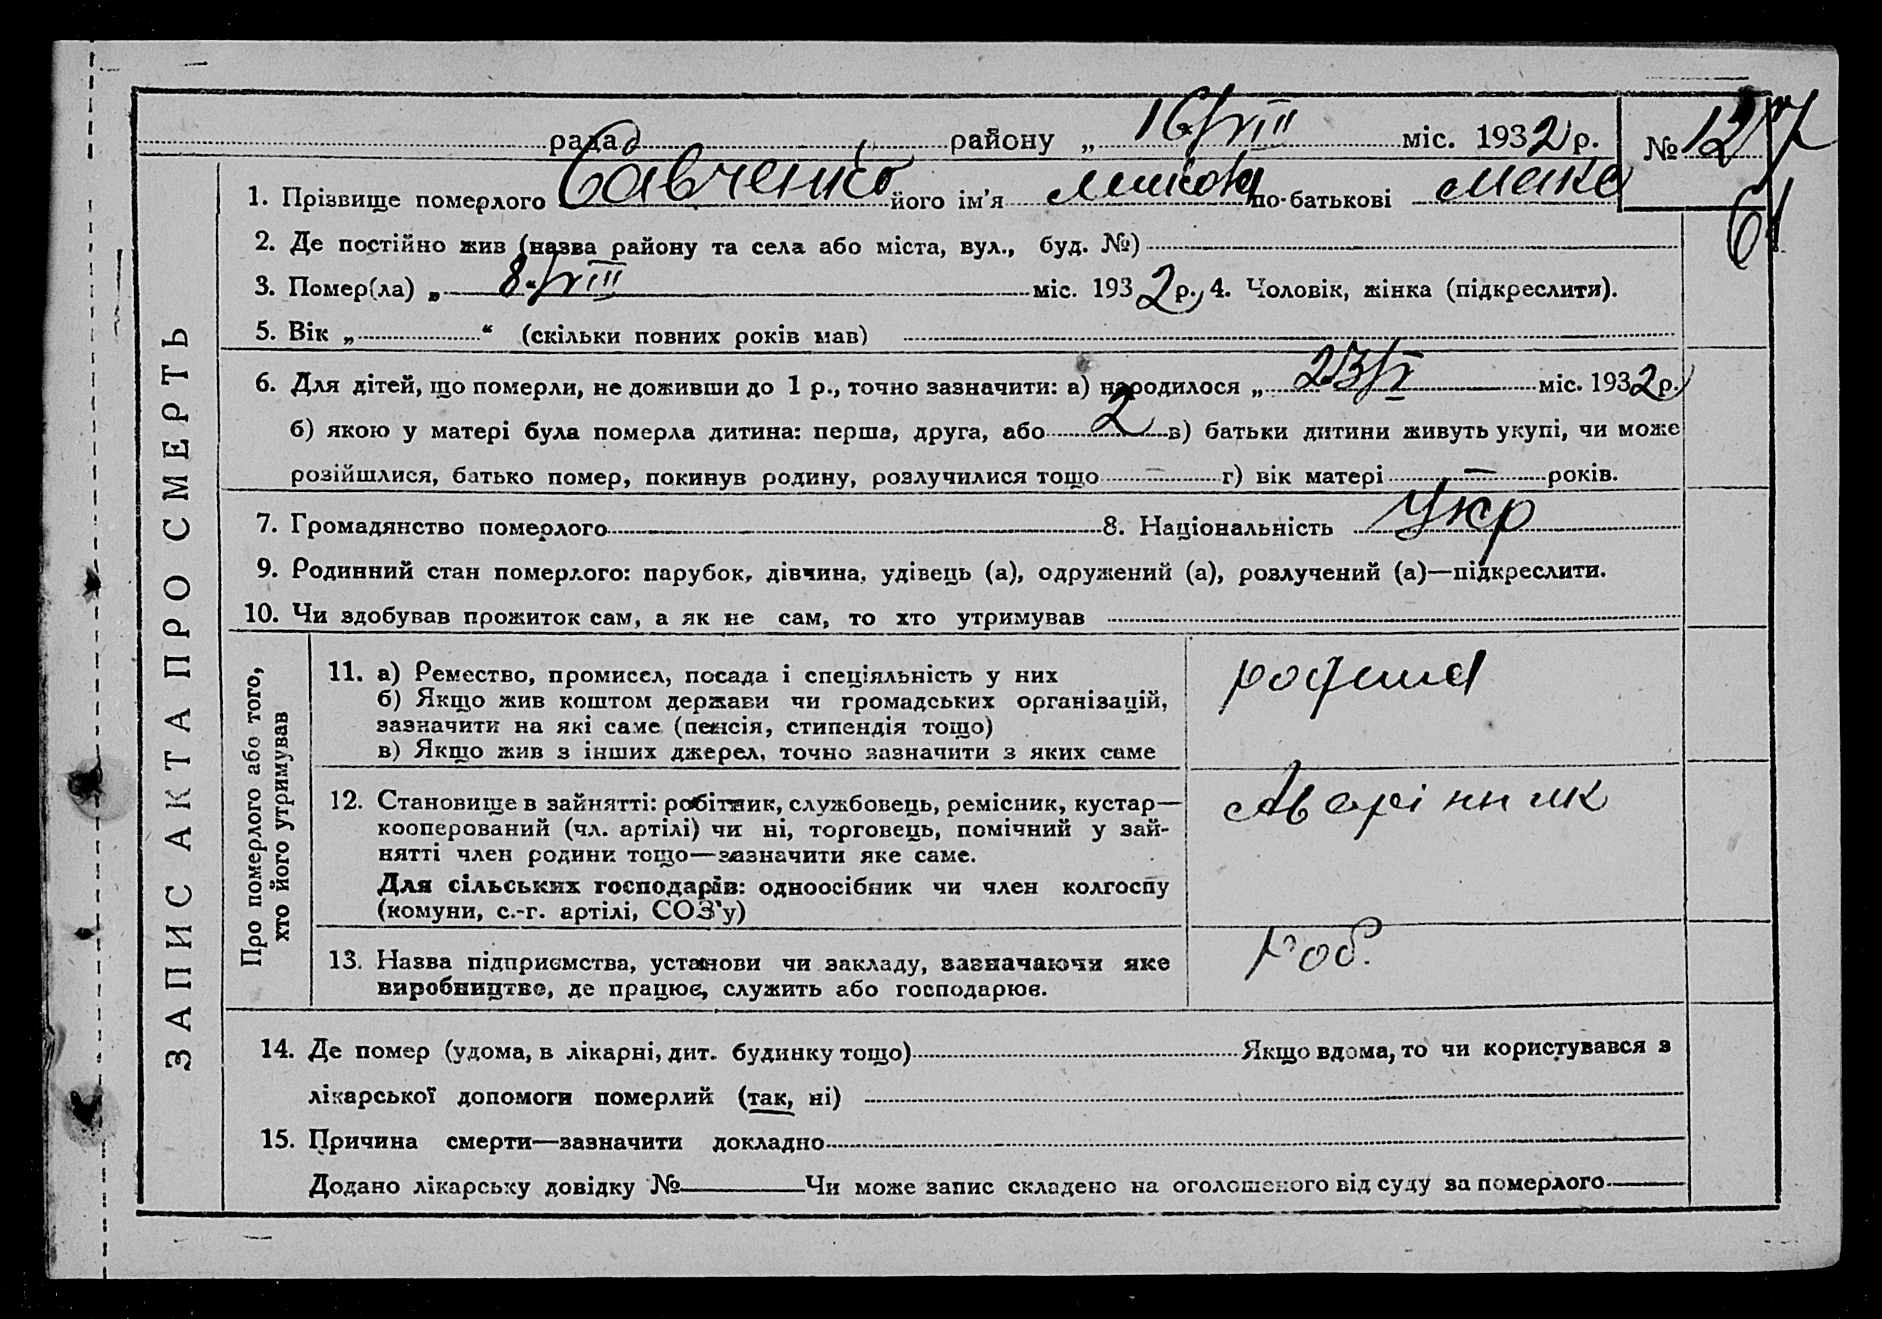 рада району „ 16/VIII міс. 1932 р. № 127
61
ЗАПИС АКТА ПРО СМЕРТЬ
1. Прізвище померлого Савченко його ім’я по-батькові
2. Де постійно жив (назва району та села або міста, вул., буд. №)
3. Помер(ла) „ 8/VIII міс. 1932 р. 4. Чоловік, жінка (підкреслити).
5. Вік „ “ (скільки повних років мав)
6. Для дітей, що померли, не доживши до 1 р., точно зазначити: а) народилося „ 23/V міс. 1932 р.
б) якою у матері була померла дитина: перша, друга, або 2 в) батьки дитини живуть укупі, чи може
розійшлися, батько помер, покинув родину, розлучилися тощо — г) вік матері — років.
7. Громадянство померлого 8. Національність Укр
9. Родинний стан померлого: парубок, дівчина, удівець (а), одружений (а), розлучений (а)—підкреслити.
10. Чи здобував прожиток сам, а як не сам, то хто утримував
Про померлого або того,
хто його утримував
11. а) Ремество, промисел, посада і спеціяльність у них
б) Якщо жив коштом держави чи громадських організацій,
зазначити на які саме (пенсія, стипендія тощо)
в) Якщо жив з інших джерел, точно зазначити з яких саме
12. Становище в зайнятті: робітник, службовець, ремісник, кустар—
кооперований (чл. артілі) чи ні, торговець, помічний у зай-
нятті член родини тощо—зазначити яке саме.
Для сільських господарів: одноосібник чи член колгоспу
(комуни, с.-г. артілі, СОЗ'у)
13. Назва підприємства, установи чи закладу, зазначаючи яке
виробництво, де працює, служить або господарює.
Роб.
14. Де помер (удома, в лікарні, дит. будинку тощо) Якщо вдома, то чи користувався з
лікарської допомоги померлий (так, ні)
15. Причина смерти—зазначити докладно
Додано лікарську довідку № Чи може запис складено на оголошеного від суду за померлого